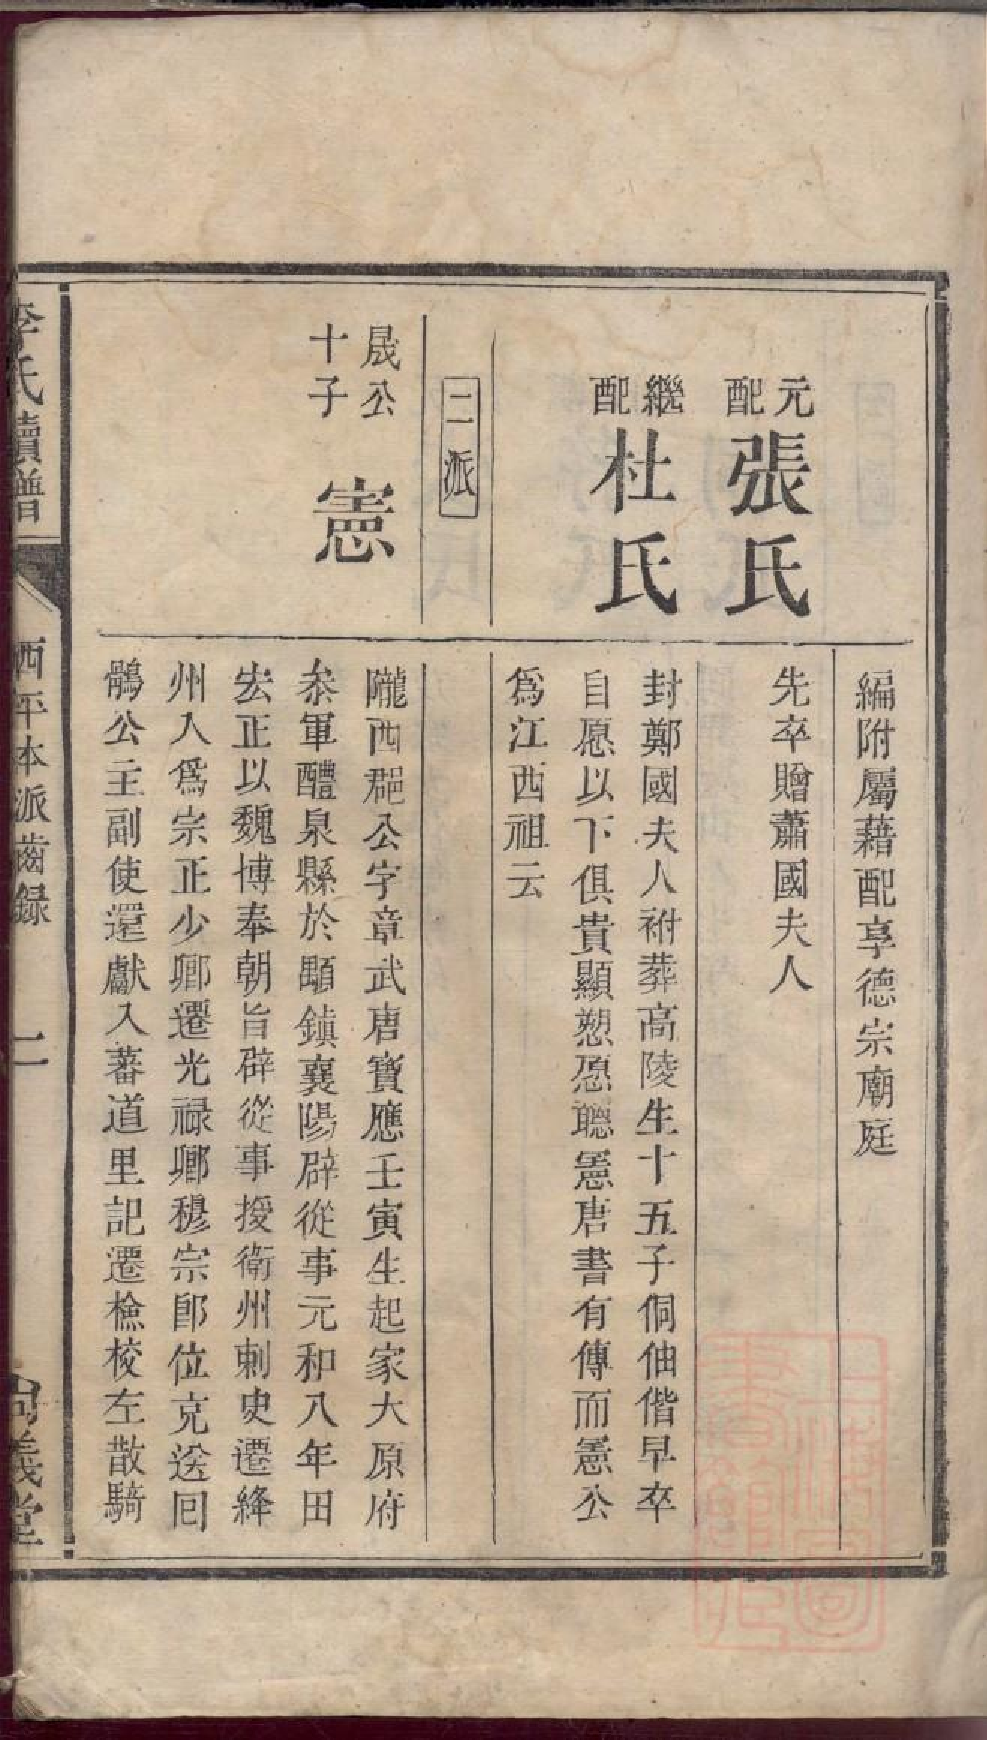 編附屬藉配享德宗廟庭
元配
張氏
先卒贈蕭國夫人
繼配
杜氏
封鄭國夫人祔葬高陵生十五子侗伷偕早卒
自愿以下俱貴顯愬愿聽憲唐書有傳而憲公
爲江西祖云
二派
晟公
十子
憲
隴西郡公字章武唐寶應壬寅生起家大原府
叅軍醴泉縣於頔鎮襄陽辟從事元和八年田
宏正以魏博奉朝旨辟從事授衛州刺史遷絳
州入爲宗正少卿遷光禄卿穆宗卽位克送回
鶻公主副使還獻入蕃道里記遷檢校左散騎
李氏續譜
西平本派齒録
二
尚義堂